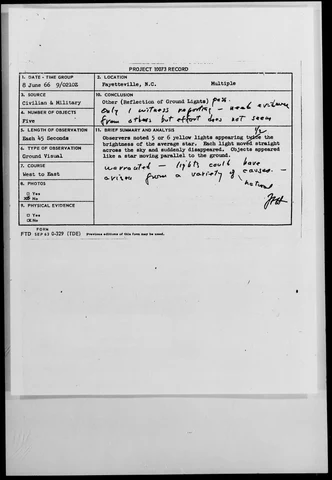 PROJECT 10073 RECORD
1. DATE - TIME GROUP
8 June 66 9/0210Z
2. LOCATION
Fayetteville, N.C. Multiple
3. SOURCE
Civilian & Military
10. CONCLUSION
Other (Reflection of Ground Lights) poss.
Only 1 witness reporting - need evidence
from others but effort does not seem
4. NUMBER OF OBJECTS
Five
5. LENGTH OF OBSERVATION
Each 45 Seconds
11. BRIEF SUMMARY AND ANALYSIS
Observers noted 5 or 6 yellow lights appearing twice the
brightness of the average star. Each light moved straight
across the sky and suddenly disappeared. Objects appeared
like a star moving parallel to the ground.
warranted - lights could have
arisen from a variety of causes -
natural
6. TYPE OF OBSERVATION
Ground Visual
7. COURSE
West to East
8. PHOTOS
□ Yes
No
9. PHYSICAL EVIDENCE
□ Yes
No
FORM
FTD SEP 63 0-329 (TDE) Previous editions of this form may be used.